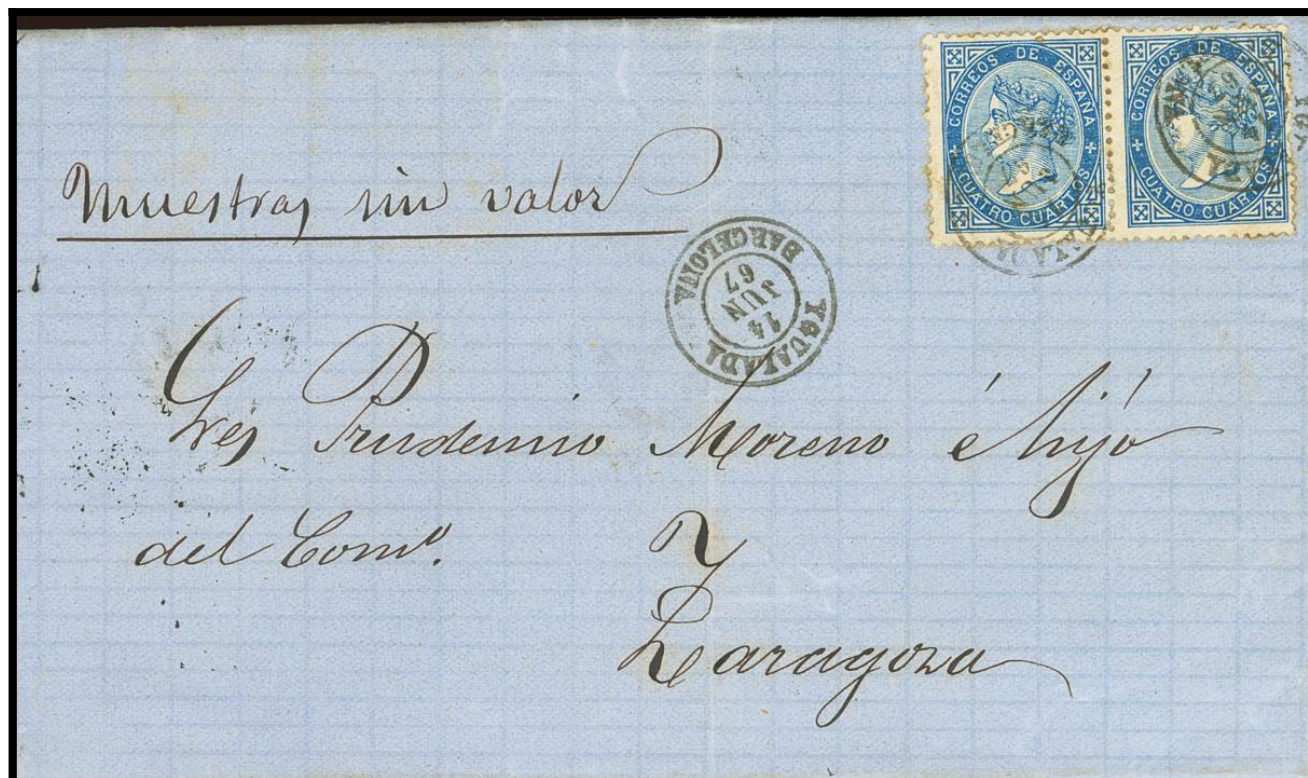 CORREOS DE ESPAÑA
CUATRO CUARTOS
CORREOS DE ESPAÑA
CUATRO CUARTOS
Muestras sin valor
YGUALADA
14
JUN
67
BARCELONA
Sres Prudencio Moreno é hijo
del Como.
Zaragoza